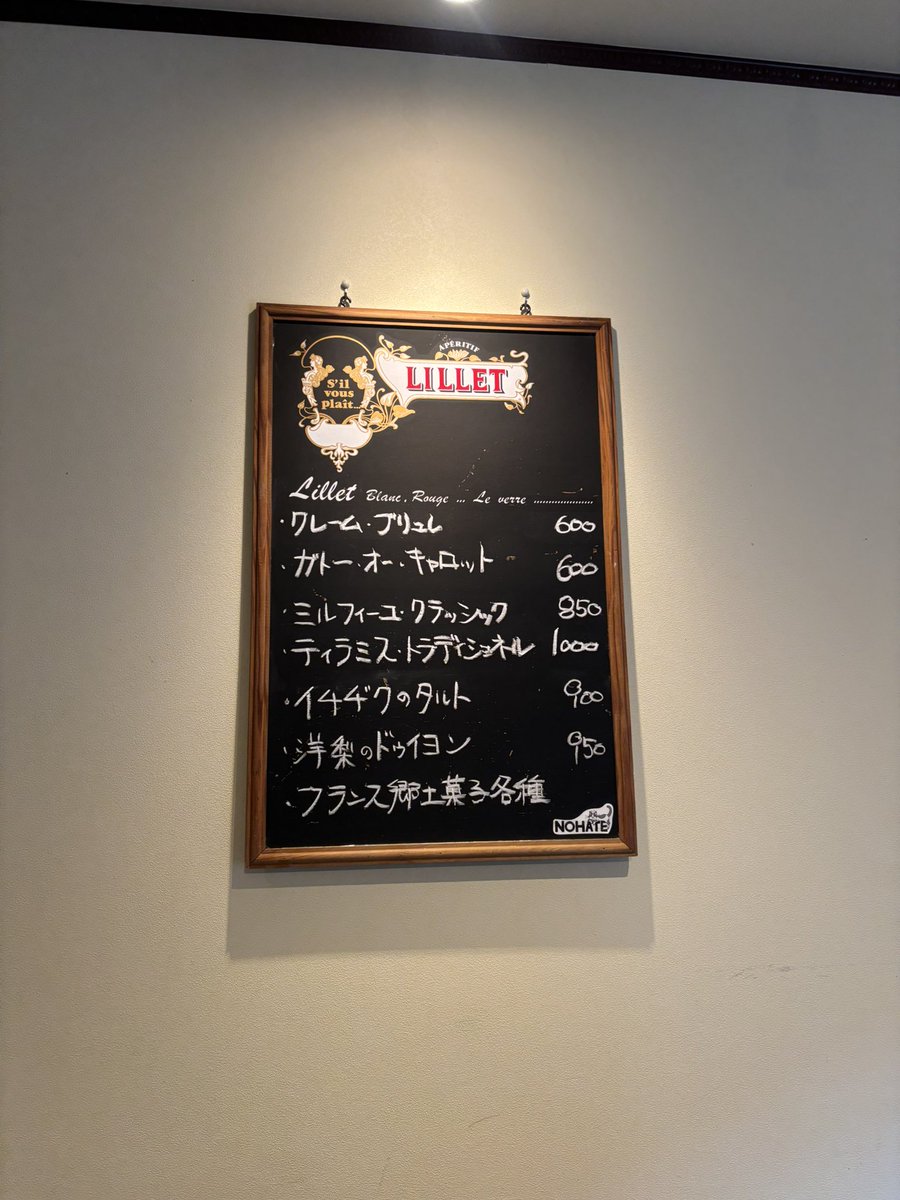 APÉRITIF
LILLET
S'il
vous
plaît...
Lillet Blanc, Rouge ... Le verre ....................
・クレーム・ブリュレ 600
・ガトー・オー・キャロット 600
・ミルフィーユ・クラッシック 850
・ティラミス・トラディショネル 1000
・イチヂクのタルト 900
・洋梨のドゥイヨン 950
・フランス郷土菓子各種
NOHATE